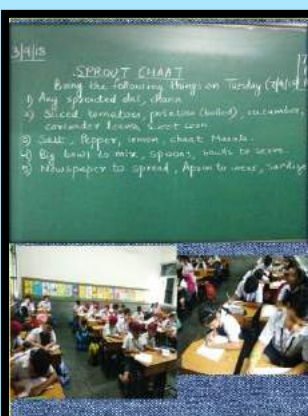 3/9/15
SPROUT CHAAT
Bring the following things on Tuesday
1) Any sprouted dal, chana
2) Sliced tomatoes, potatoes (boiled), cucumber,
coriander leaves, sweet corn
3) Salt, Pepper, lemon, chaat Masala.
4) Big bowl to mix, spoons, bowls to serve.
5) Newspaper to spread, Apron to wear,